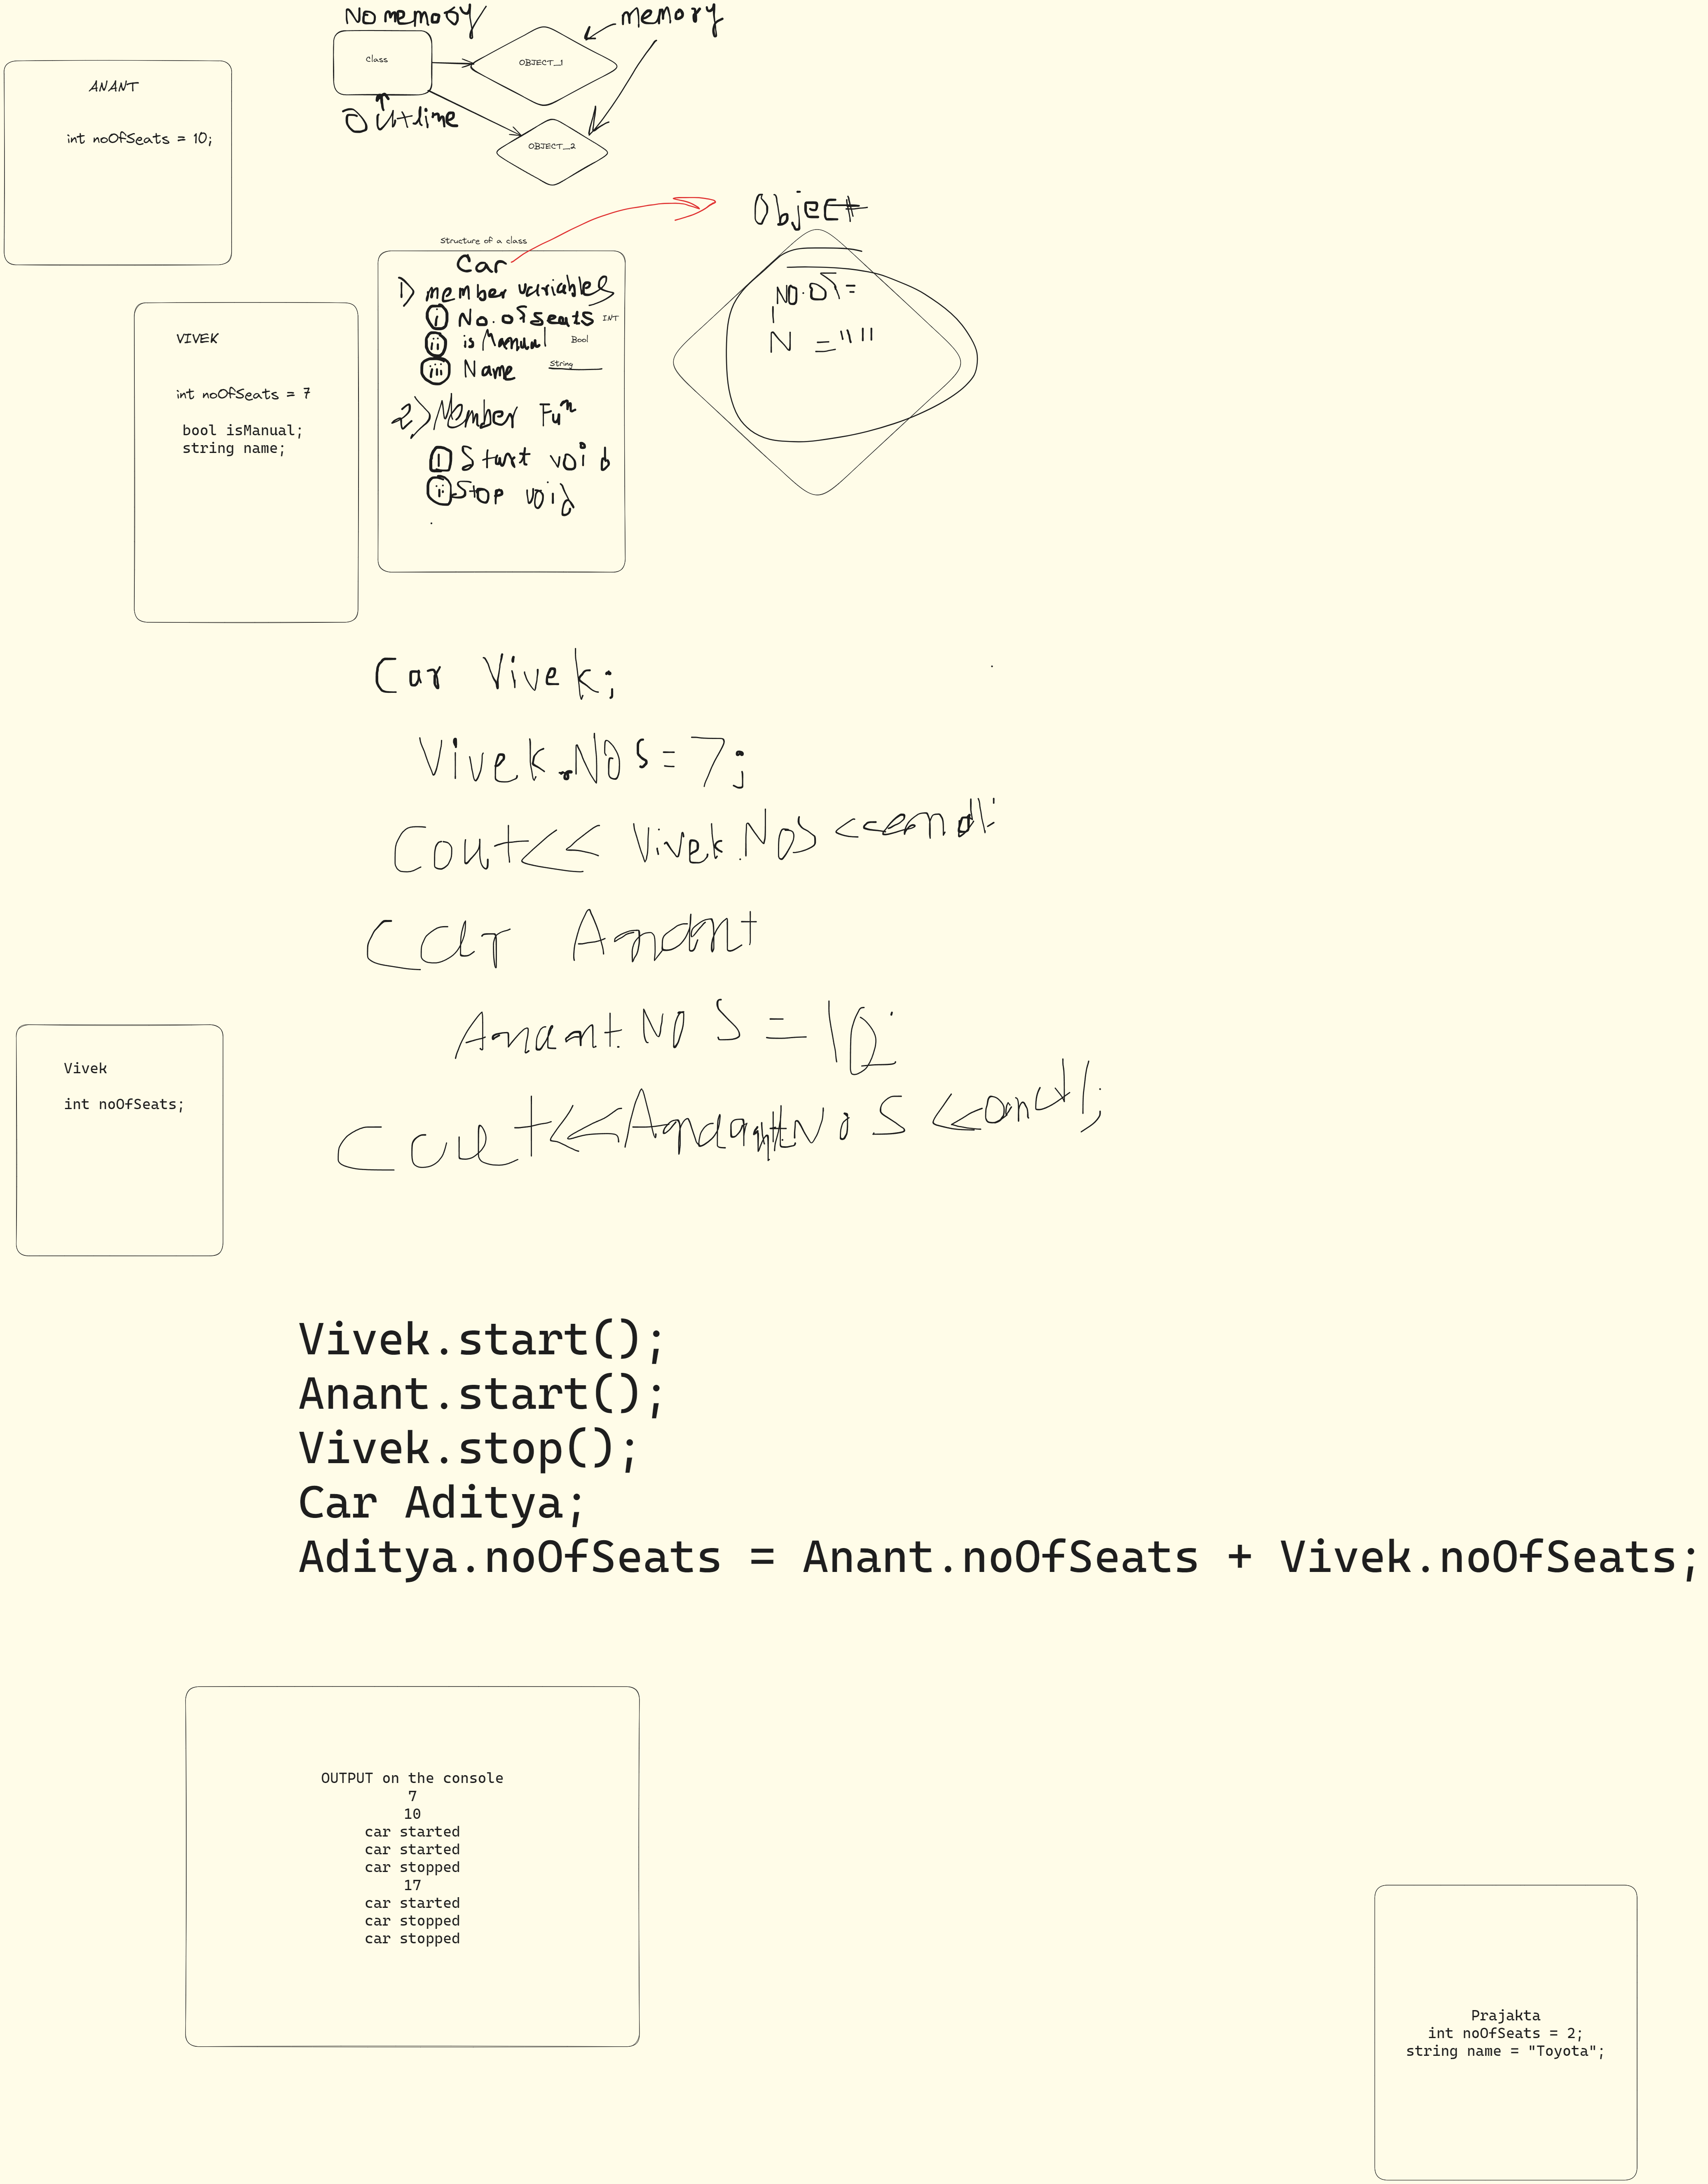 No memory
memory
class
OBJECT_1
Outline
OBJECT_2
ANANT
int noOfSeats = 10;
Object
Structure of a class
Car
1) member variables
i No. of seats INT
ii is Manual Bool
iii Name String
2) Member Fuⁿ
i Start void
ii Stop void
No. Of =
N = " "
VIVEK
int noOfSeats = 7
bool isManual;
string name;
Car Vivek;
Vivek.NOS = 7;
Cout<< Vivek.NOS <<endl;
Car Anant
Anant.NOS = 10;
Cout<<Anant.NOS <<endl;
Vivek
int noOfSeats;
Vivek.start();
Anant.start();
Vivek.stop();
Car Aditya;
Aditya.noOfSeats = Anant.noOfSeats + Vivek.noOfSeats;
OUTPUT on the console
7
10
car started
car started
car stopped
17
car started
car stopped
car stopped
Prajakta
int noOfSeats = 2;
string name = "Toyota";